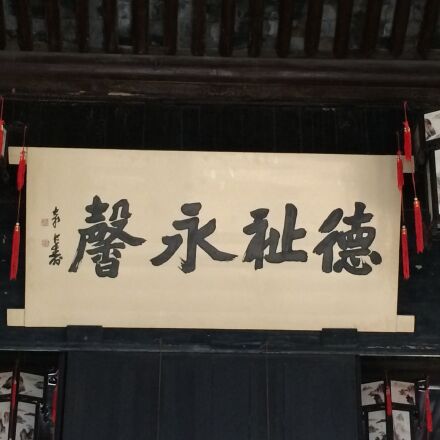 德祉永馨